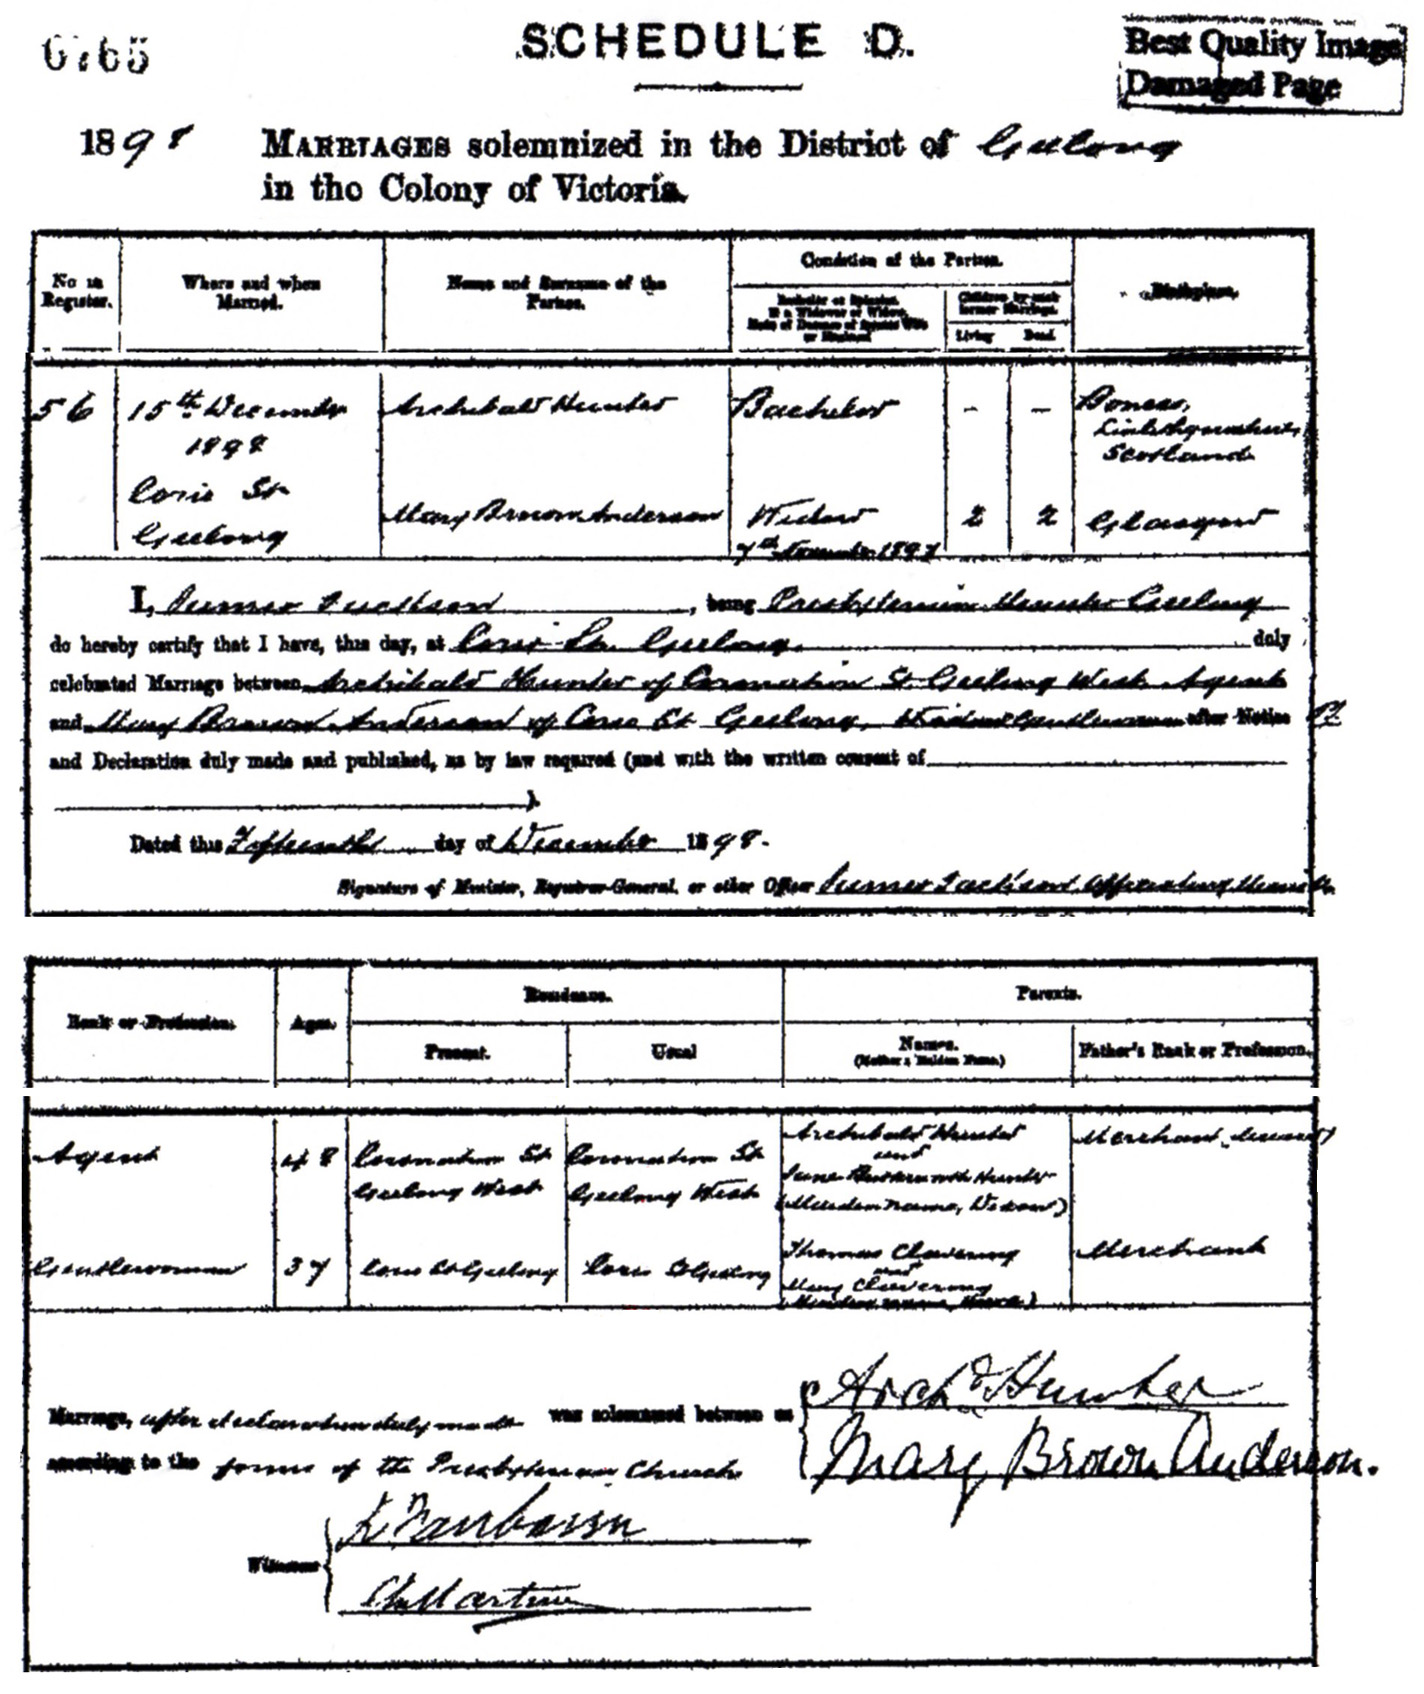 SCHEDULE D.
Best Quality Image
Damaged Page
1898 MARRIAGES solemnized in the District of Geelong
in the Colony of Victoria.
No in Register.
Where and when Married.
Name and Surname of the Parties.
Condition of the Parties.
Children by each former Marriage.
Living
Dead.
Birthplace.
56
15th December
1898
Corio St
Geelong
Archibald Hunter
Bachelor
-
-
Boness,
Linlithgowshire,
Scotland
Mary Brown Anderson
Widow
7th November 1897
2
2
Glasgow
I, James Jackson, being Presbyterian Minister Geelong
do hereby certify that I have, this day, at Corio St. Geelong. duly
celebrated Marriage between Archibald Hunter of Coronation St Geelong West Agent
and Mary Brown Anderson of Corio St Geelong, Widow Gentlewoman after Notice
and Declaration duly made and published, as by law required (and with the written consent of
).
Dated this Fifteenth day of December 1898.
Signature of Minister, Registrar-General, or other Officer James Jackson Officiating Minister
Rank or Profession.
Ages.
Residence.
Present.
Usual
Parents.
Names.
(Mother's Maiden Name.)
Father's Rank or Profession.
Agent
48
Coronation St
Geelong West
Coronation St
Geelong West
Archibald Hunter
and
Hunter
(Maiden name,
Merchant
Gentlewoman
37
Corio St Geelong
Corio St Geelong
Thomas Clavering
and
Mary Clavering
(Maiden name,
Merchant
Marriage, after declaration duly made was solemnized between us
according to the forms of the Presbyterian Church
Archd Hunter
Mary Brown Anderson.
Witnesses
Fairbairn
Martin